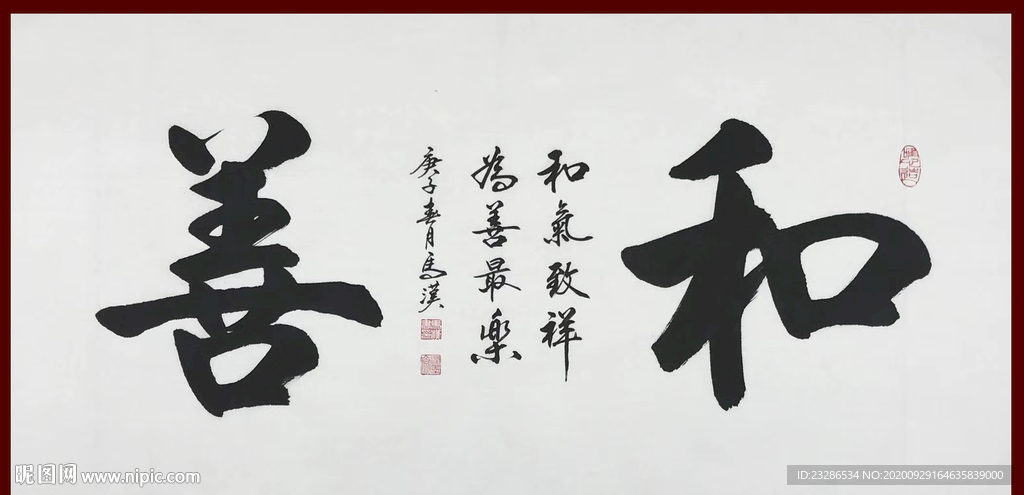 和
和氣致祥
為善最樂
庚子春月馬漢
善
昵图网 www.nipic.com
ID:23286534 NO:20200929164635839000